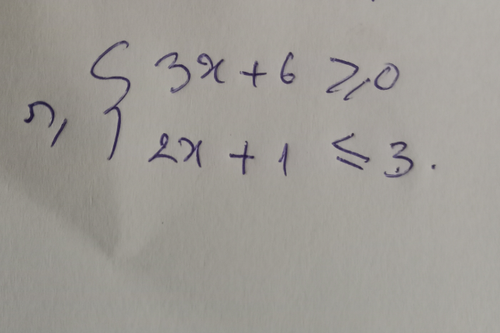 3x + 6 ≥ 0
2x + 1 ≤ 3.